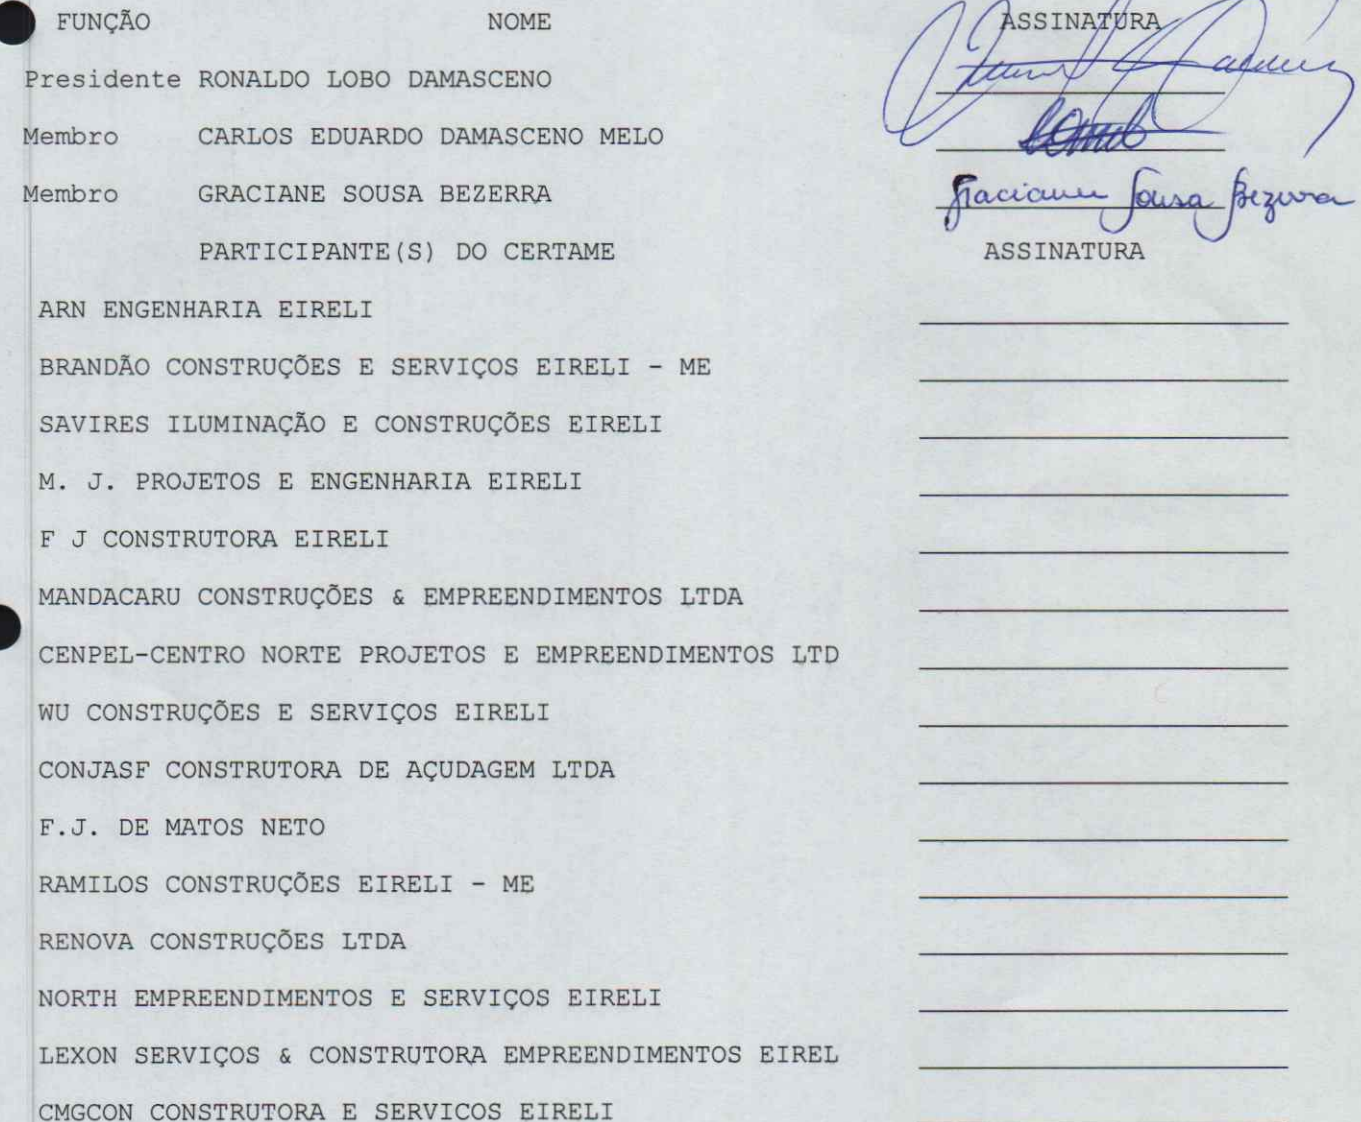 FUNÇÃO NOME ASSINATURA
Presidente RONALDO LOBO DAMASCENO
Membro CARLOS EDUARDO DAMASCENO MELO
Membro GRACIANE SOUSA BEZERRA Graciane Sousa Bezerra
PARTICIPANTE(S) DO CERTAME ASSINATURA
ARN ENGENHARIA EIRELI
BRANDÃO CONSTRUÇÕES E SERVIÇOS EIRELI - ME
SAVIRES ILUMINAÇÃO E CONSTRUÇÕES EIRELI
M. J. PROJETOS E ENGENHARIA EIRELI
F J CONSTRUTORA EIRELI
MANDACARU CONSTRUÇÕES & EMPREENDIMENTOS LTDA
CENPEL-CENTRO NORTE PROJETOS E EMPREENDIMENTOS LTD
WU CONSTRUÇÕES E SERVIÇOS EIRELI
CONJASF CONSTRUTORA DE AÇUDAGEM LTDA
F.J. DE MATOS NETO
RAMILOS CONSTRUÇÕES EIRELI - ME
RENOVA CONSTRUÇÕES LTDA
NORTH EMPREENDIMENTOS E SERVIÇOS EIRELI
LEXON SERVIÇOS & CONSTRUTORA EMPREENDIMENTOS EIREL
CMGCON CONSTRUTORA E SERVICOS EIRELI